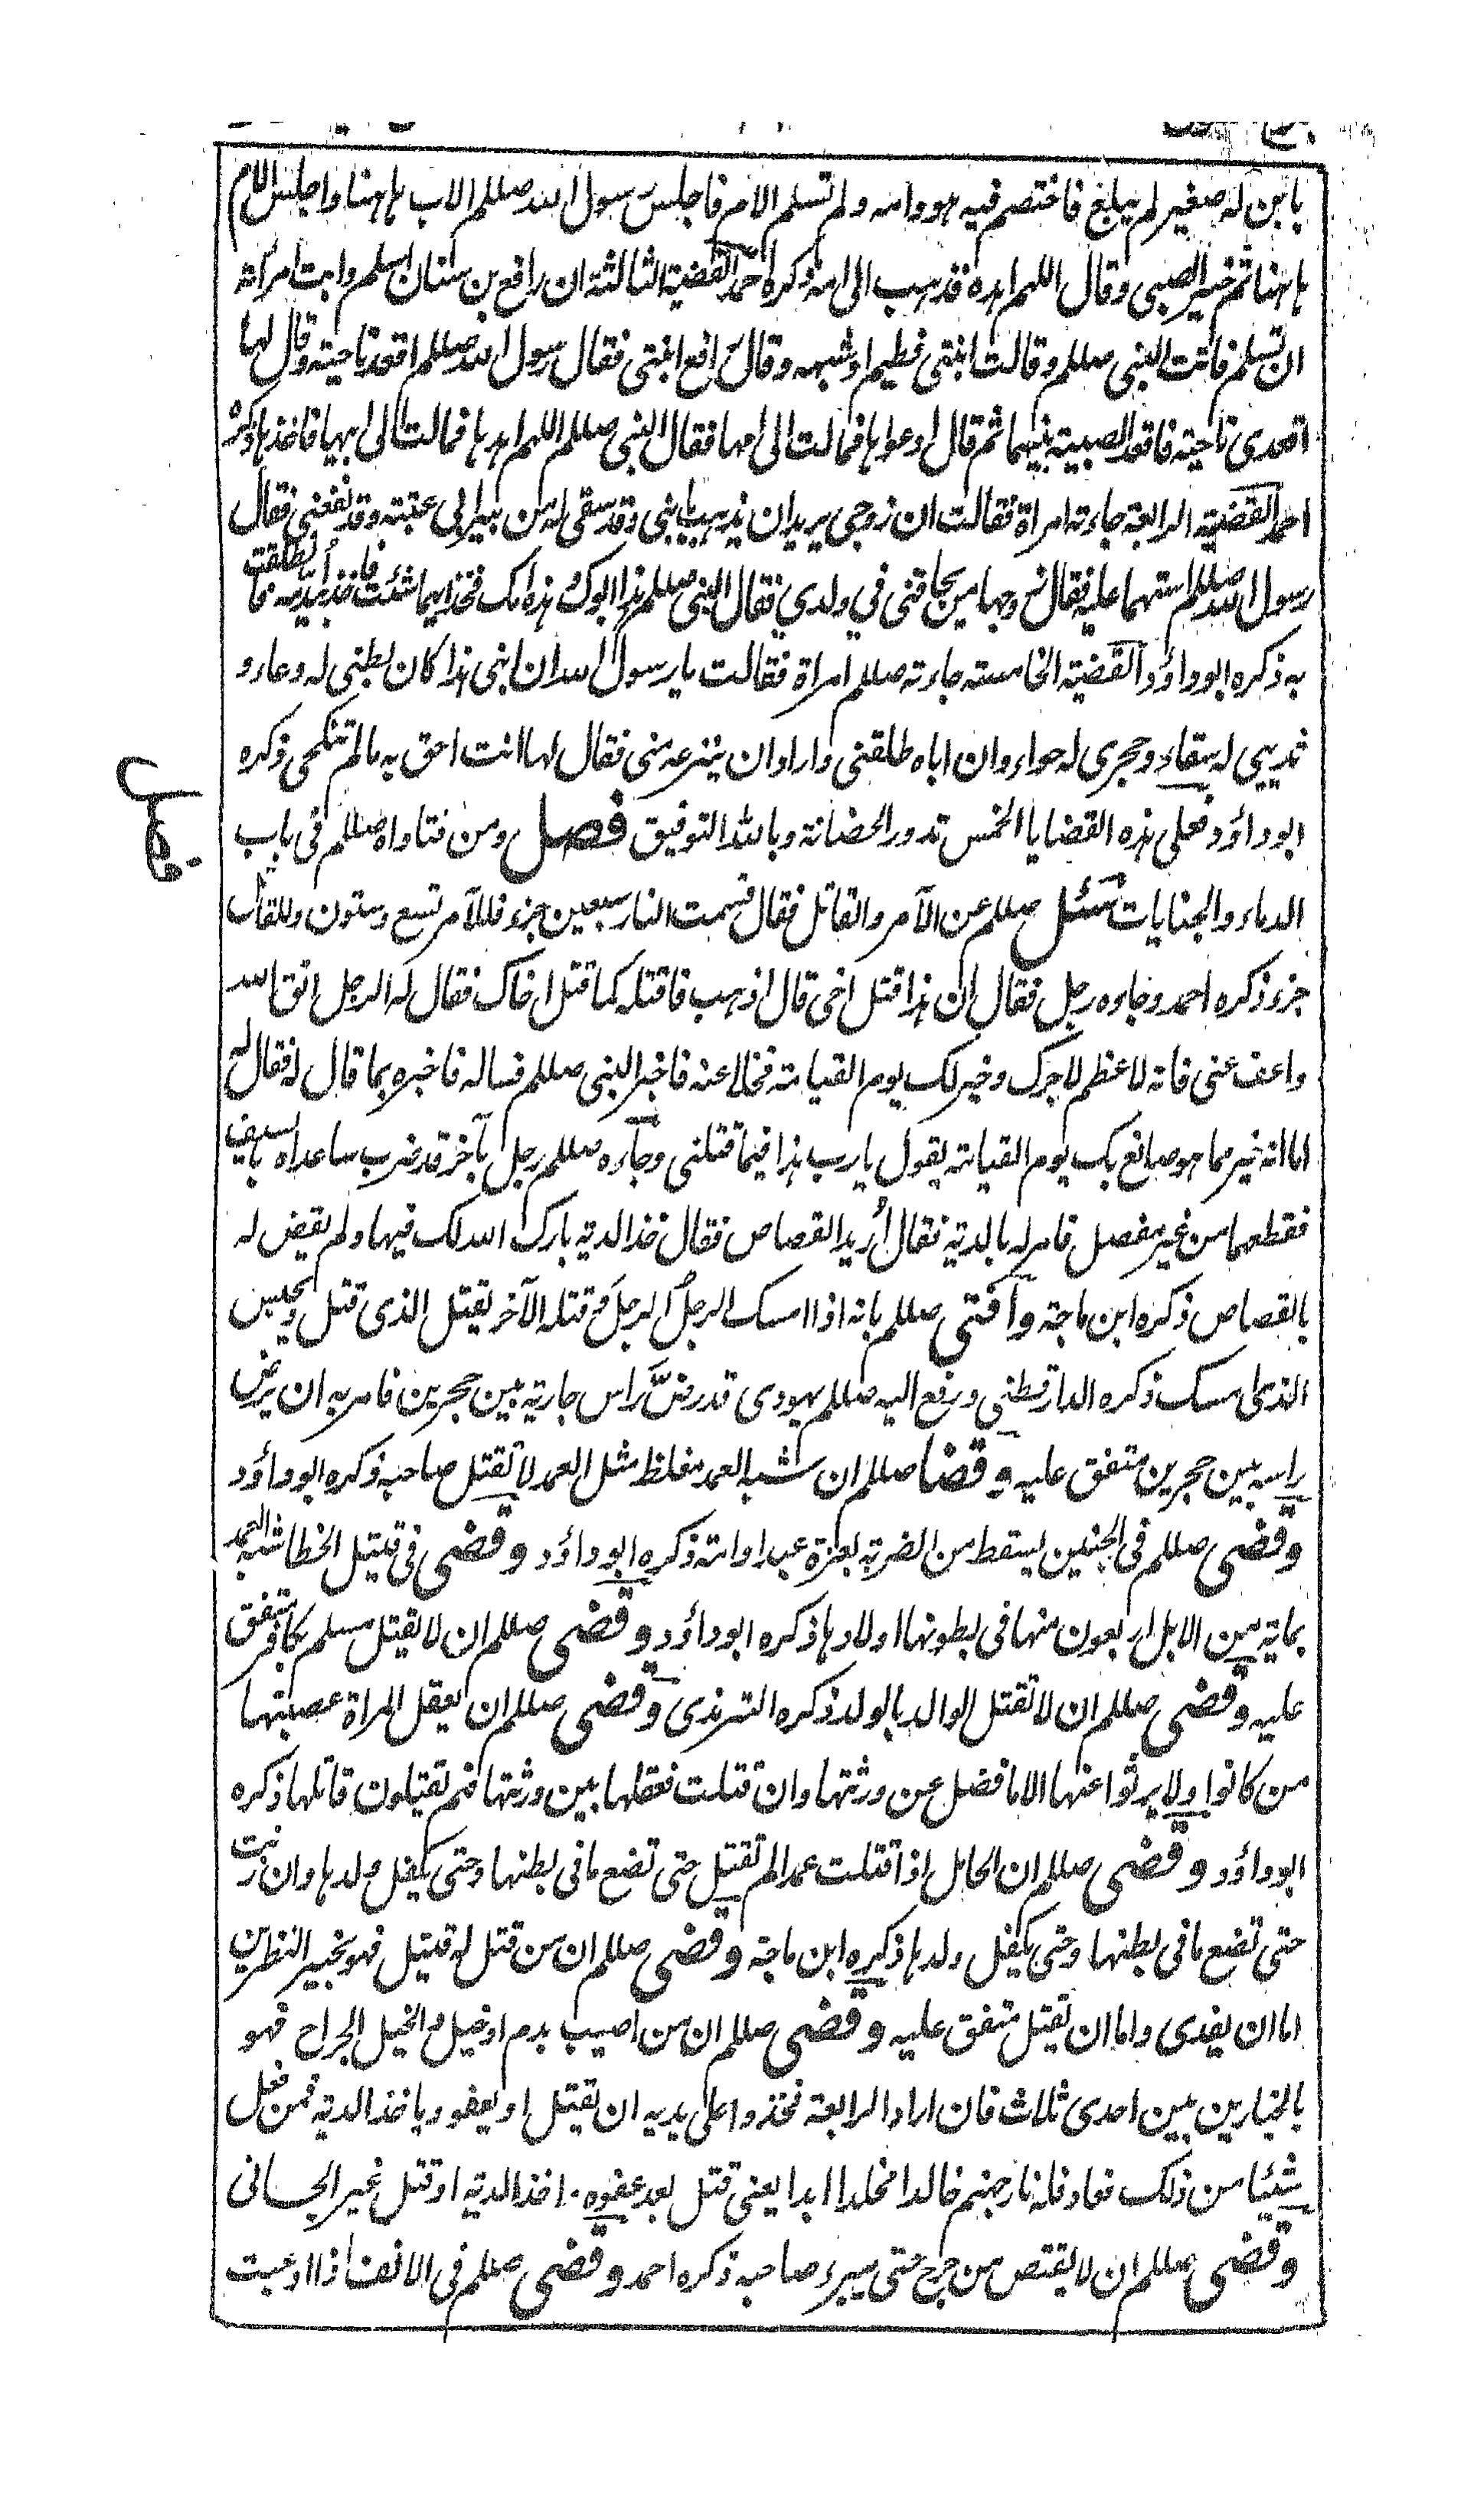 بابن له صغير لم يبلغ فاختصم فيه هو وامه ولم تسلم الام فاجلس رسول الله صللم الاب هاهنا واجلس الام
هاهنا ثم خير الصبي وقال اللهم اهده فذهب الى امه ذكره احمد القضية الثالثة ان رافع بن سنان اسلم وابت امرأته
ان تسلم فاتت النبي صللم وقالت ابنتي فطيم او شبهه وقال رافع ابنتي فقال رسول الله صللم اقعد ناحية وقال لها
اقعدي ناحية فاقعد الصبية بينهما ثم قال ادعواها فمالت الى امها فقال النبي صللم اللهم اهدها فمالت الى ابيها فاخذها ذكره
احمد القضية الرابعة جاءته امراة فقالت ان زوجي يريد ان يذهب بابني وقد سقى له من بير ابي عتبة وقد نفعني فقال
رسول الله صللم استهما عليه فقال زوجها من يحاقني في ولدي فقال النبي صللم هذا ابوك وهذه امك فخذ ايهما شئت فاخذ بيد امه فانطلقت
به ذكره ابو داؤد القضية الخامسة جاءته صللم امراة فقالت يا رسول الله ان ابني هذا كان بطني له وعاء و
ثديي له سقاء وحجري له حواء وان اباه طلقني واراد ان ينزعه مني فقال لها انت احق به مالم تنكحي ذكره
ابو داؤد فعلى هذه القضايا الخمس تدور الحضانة وبالله التوفيق فصل ومن فتاواه صللم في باب
فصل
الدماء والجنايات سئل صللم عن الآمر والقاتل فقال قسمت النار سبعين جزء فللآمر تسع وستون وللقاتل
جزء ذكره احمد وجاءه رجل فقال ان هذا قتل اخي قال اذهب فاقتله كما قتل اخاك فقال له الرجل اتق الله
واعف عني فانه لاعظم لاجرك وخير لك يوم القيامة فخلا عنه فاخبر النبي صللم فساله فاخبره بما قال له فقال له
اما انه خير مما هو صانع بك يوم القيامة يقول يا رب هذا فيما قتلني وجاءه صللم رجل بآخر قد ضرب ساعداه بالسيف
فقطعهما من غير مفصل فامر له بالدية فقال اُريد القصاص فقال خذ الدية بارك الله لك فيها ولم يقض له
بالقصاص ذكره ابن ماجة وافتى صللم بانه اذا امسك الرجلُ الرجلَ وقتله الآخر يقتل الذى قتل ويحبس
الذى امسك ذكره الدارقطني ورفع اليه صللم يهودى قد رضَّ راس جارية بين حجرين فامر به ان يرض
راسه بين حجرين متفق عليه وقضا صللم ان شبه العمد مغلظ مثل العمد لا يقتل صاحبه ذكره ابو داؤد
وقضى صللم في الجنين يسقط من الضربة بغرة عبد او امة ذكره ابو داؤد وقضى في قتيل الخطا شبه العمد
بماية من الابل اربعون منها في بطونها اولادها ذكره ابو داؤد وقضى صللم ان لا يقتل مسلم بكافر متفق
عليه وقضى صللم ان لا تقتل الوالد بالولد ذكره الترمذى وقضى صللم ان يعقل المراة عصبتها
من كانوا ولا يرثوا عنها الا ما فضل عن ورثتها وان قتلت فعقلها بين ورثتها فهم يقتلون قاتلها ذكره
ابو داؤد وقضى صللم ان الحامل اذا قتلت عمدا لم تقتل حتى تضع ما في بطنها وحتى يكفل ولدها وان زنت
حتى تضع ما في بطنها وحتى يكفل ولدها ذكره ابن ماجة وقضى صللم ان من قتل له قتيل فهو بخير النظرين
اما ان يفدى واما ان يقتل متفق عليه وقضى صللم ان من اصيب بدم او خبل والخبل الجراح فهو
بالخيار بين بين احدى ثلاث فان اراد الرابعة فخذوا على يديه ان يقتل او يعفو او ياخذ الدية فمن فعل
شيئا من ذلك فعاد فله نار جهنم خالدا مخلدا ابدا يعني قتل بعد عفوه. اخذ الدية او قتل غير الجانى
وقضى صللم ان لا يقتص من جرح حتى يبرء صاحبه ذكره احمد وقضى صللم في الانف اذا اوعبت